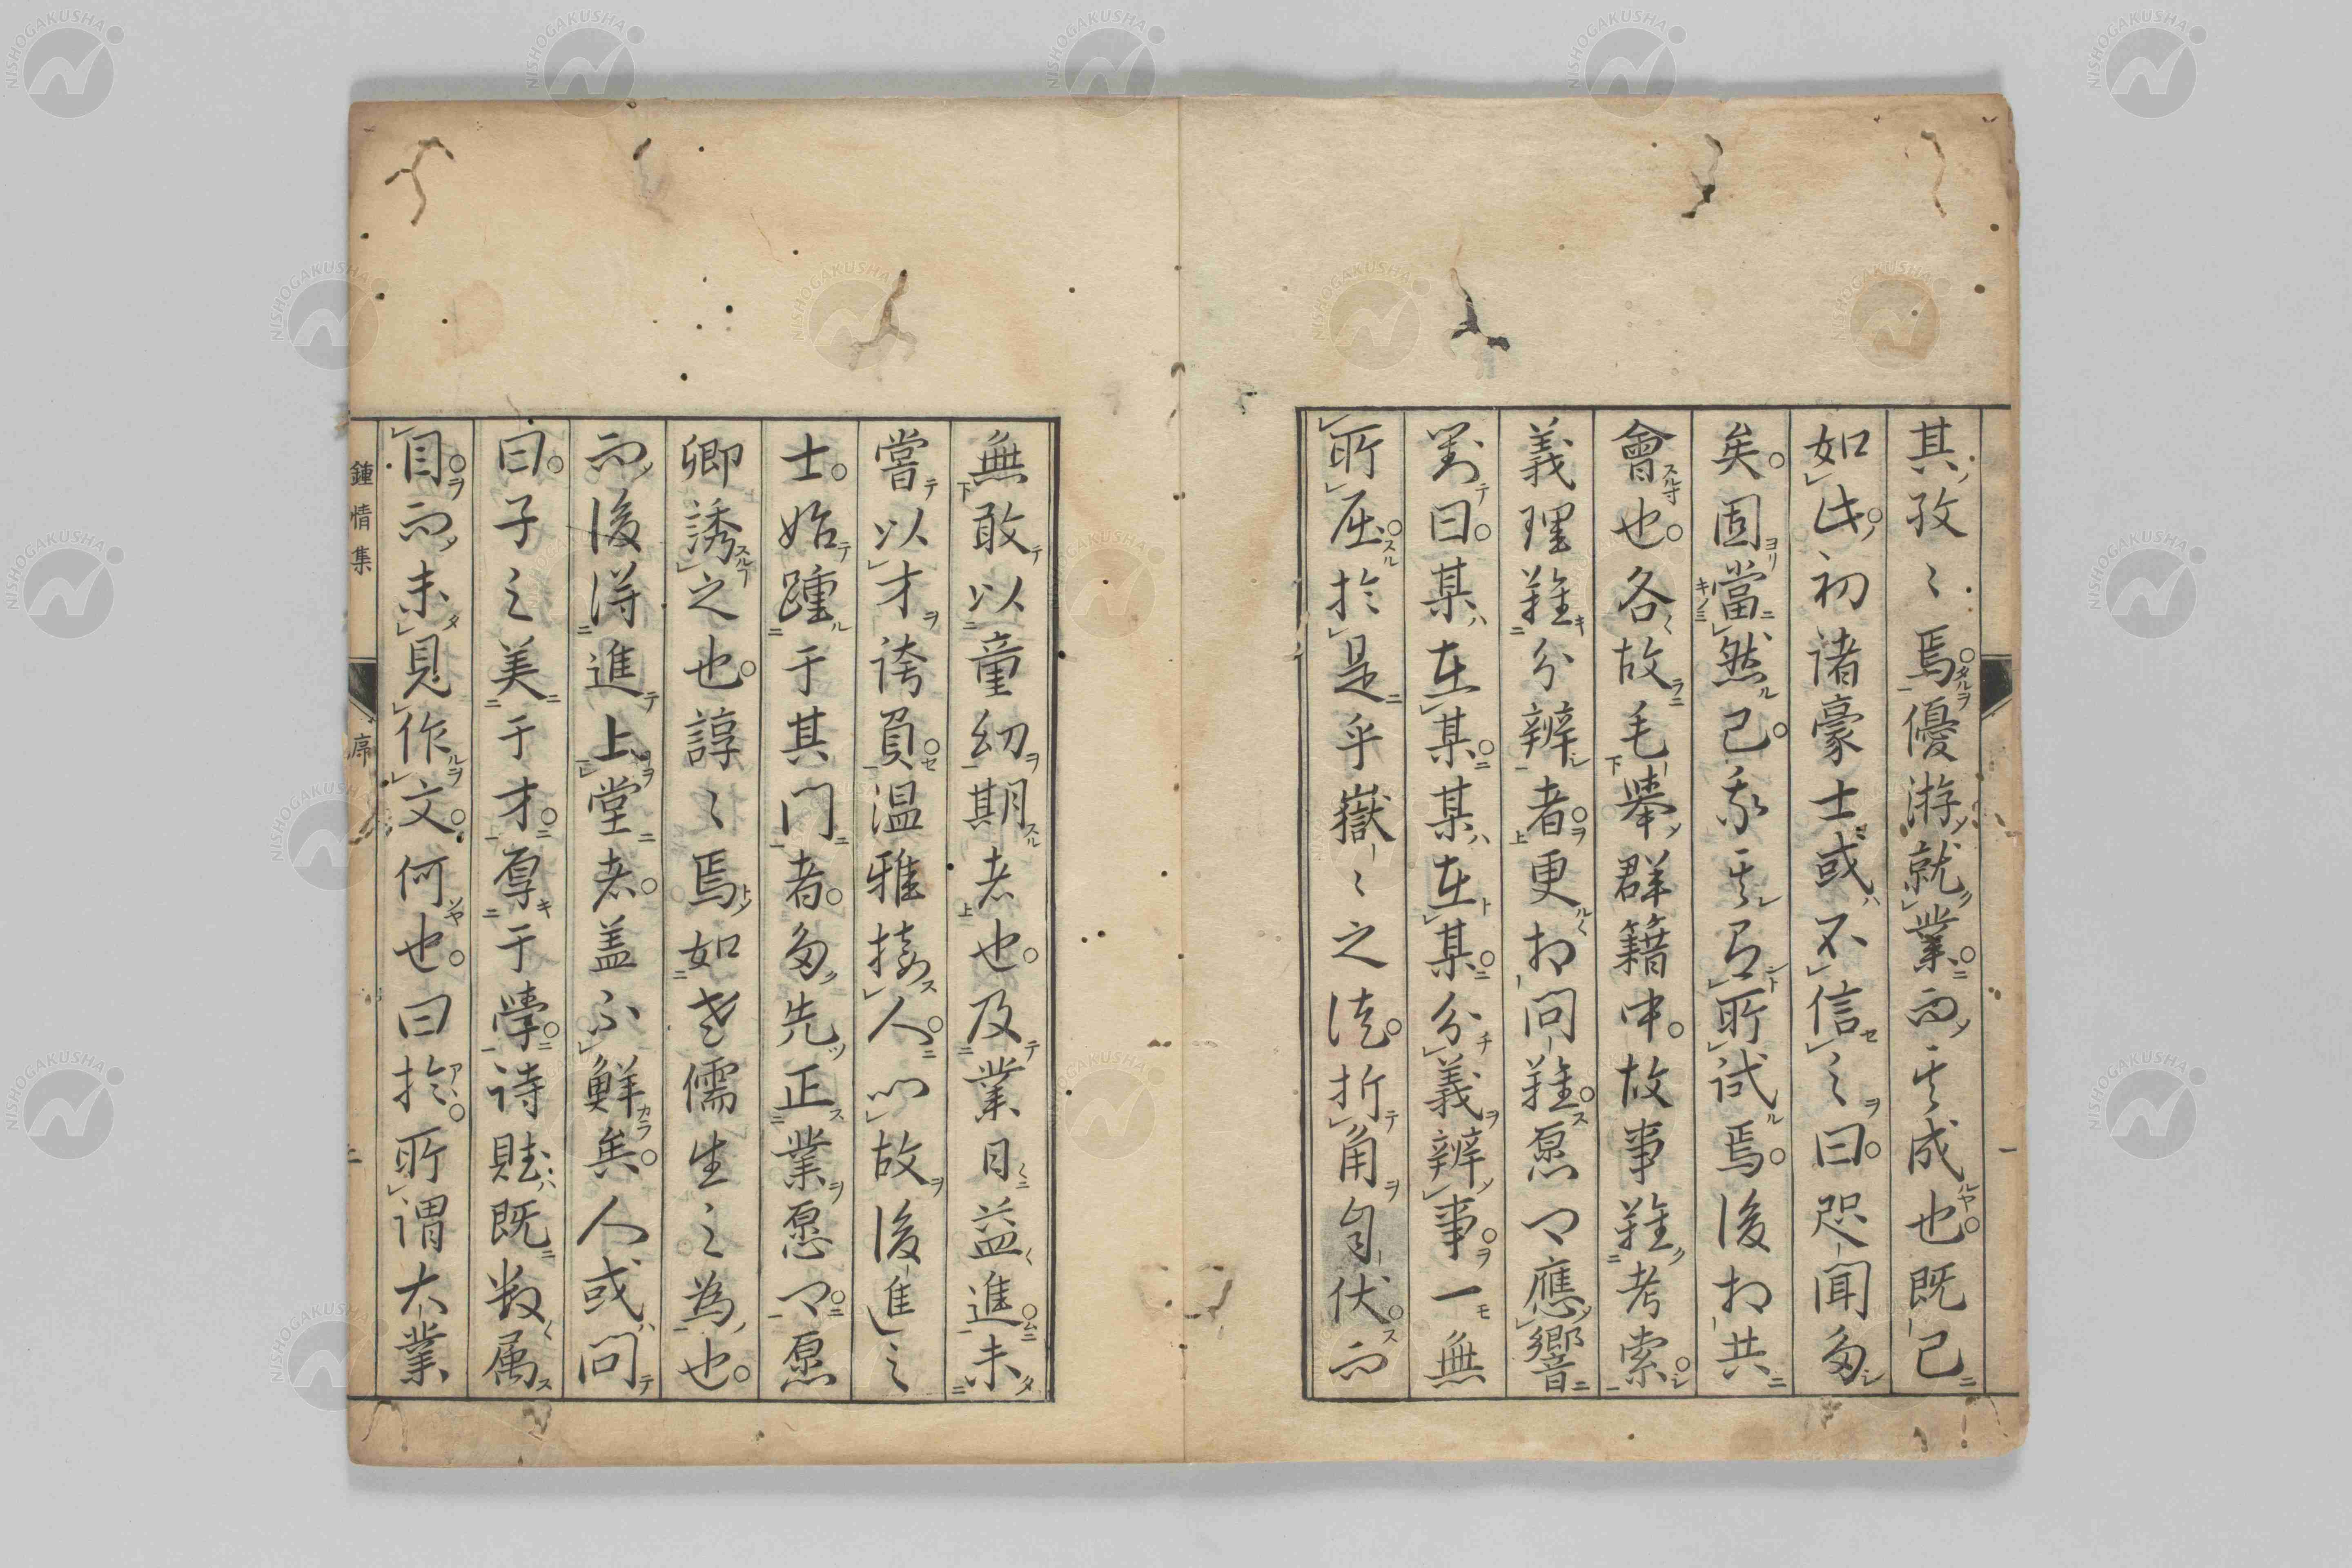 其孜〻焉優游就業而其成也既已
如此初諸豪士或不信之曰咫聞多
矣固當然已我其有所試焉後相共
會也各故毛舉群籍中故事難考索
義理難分辨者更相問難愿卿應響
對曰某在某某在某分義辨事一無
所屈於是乎嶽〻之徒折角匐伏而
無敢以童幼期者也及業日益進未
嘗以才誇負温雅接人以故後進之
士始踵于其門者多先正業愿卿愿
卿誘之也諄〻焉如老儒生之為也
而後得進上堂者蓋不鮮矣人或問
曰子之美于才厚于學詩賦既數属
目而未見作文何也曰於所謂大業
鍾情集
序
二
一